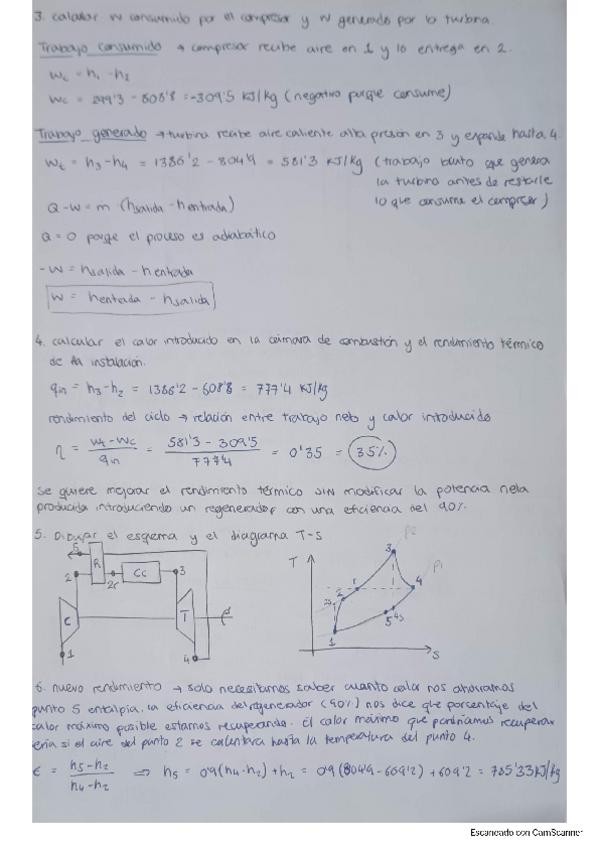 3. calcular w consumido por el compresor y w generado por la turbina.
Trabajo consumido → compresor recibe aire en 1 y lo entrega en 2.
Wc = h1 - h2
Wc = 299'3 - 608'8 = -309'5 KJ/kg (negativo porque consume)
Trabajo generado → turbina recibe aire caliente alta presión en 3 y expande hasta 4.
Wt = h3 - h4 = 1386'2 - 804'9 = 581'3 KJ/kg (trabajo bruto que genera
la turbina antes de restarle
lo que consume el compresor)
Q - W = m (hsalida - hentrada)
Q = 0 porqe el proceso es adiabático
-W = hsalida - hentrada
W = hentrada - hsalida
4. calcular el calor introducido en la cámara de combustión y el rendimiento térmico
de la instalación.
qin = h3 - h2 = 1386'2 - 608'8 = 777'4 KJ/kg
rendimiento del ciclo → relación entre trabajo neto y calor introducido
η = Wt - Wc / qin = 581'3 - 309'5 / 777'4 = 0'35 = 35%
Se quiere mejorar el rendimiento térmico SIN modificar la potencia neta
producida introduciendo un regenerador con una eficiencia del 90%.
5. Dibujar el esquema y el diagrama T-S
5 R CC 2 2r 3 C T 1 4
T P2 3 P1 2s 2 r 4 5 4s 1 S
6. nuevo rendimiento → solo necesitamos saber cuanto calor nos ahorramos
punto 5 entalpia, la eficiencia del regenerador (90%) nos dice que porcentaje del
calor máximo posible estamos recuperando. El calor máximo que podríamos recuperar
sería si el aire del punto 2 se calentara hasta la temperatura del punto 4.
ε = h5 - h2 / h4 - h2 ⇒ h5 = 0'9 (h4 - h2) + h2 = 0'9 (804'9 - 609'2) + 609'2 = 785'33 KJ/kg
Escaneado con CamScanner